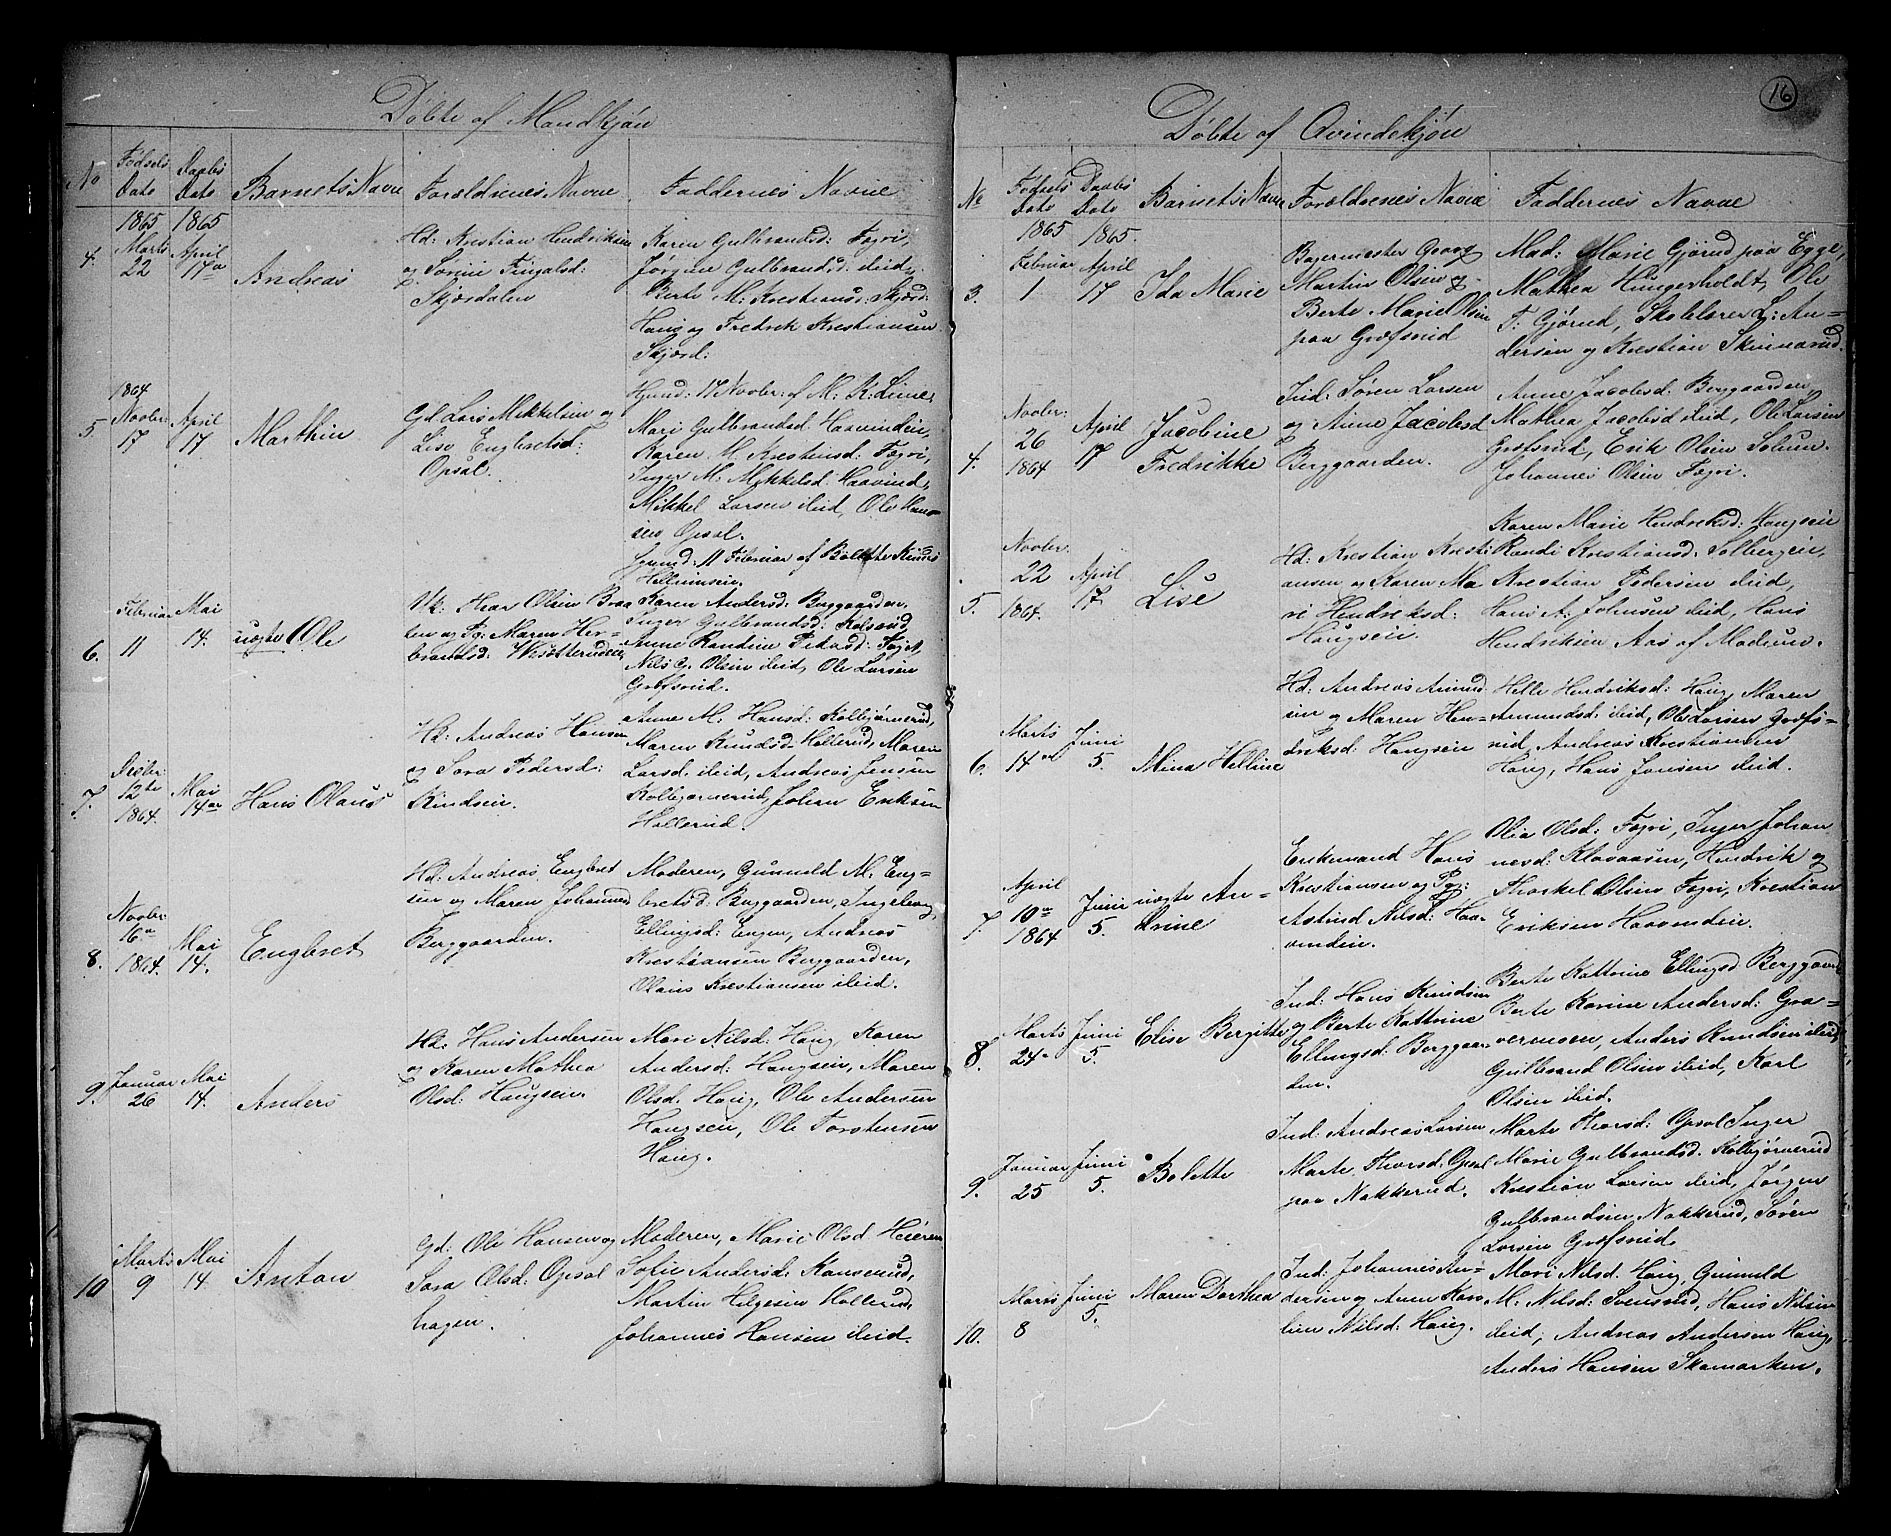 Døbte af Mandkjøn
No
Fødsels Dato
Daabs Dato
Barnets Navn
Forældrenes Navne
Faddernes Navne
4.
1865 Marts 22
1865 April 17
Andreas
Hd: Kristian Hendriksen
og Sørine Tingalsd:
Skjærdalen
Karen Gulbrandsd: Fagri,
Jørgine Gulbrandsd: ibid,
Berte M. Kristiansd: Skjærd:
Haug og Fredrik Kristiansen
Skjærd:
5.
1864 Novbr: 17
April 17
Marthin
Gd: Lars Mikkelsen og
Lise Engbretsd:
Opsal.
Hjemd: 17 Novbr: af M. K. Lime,
Mari Gulbrandsd. Haavinden,
Karen M. Kristensd: Fagri,
Inger M. Mikkelsd. Haavind,
Mikkel Larsen ibid, Ole Han-
sen Opsal.
6.
Februar 11
Mai 14.
uægte Ole
Uk: Thor Olsen Braa
ten og Pg: Maren Her-
brandsd:
Hjemd: 11 Februar af Bolette Knuds
Hellumseie.
Karen Andersd: Berggaarden,
Inger Gulbrandsd: Kolsrud,
Anne Randine Pedersd: Faget,
Nils G. Olsen ibid, Ole Larsen
Grøfsrud.
7.
Decbr: 12te 1864.
Mai 14
Hans Olaus
Hd: Andreas Hansen
og Sara Pedersd:
Rindseie.
Anne M. Hansd: Kolbjørnerud,
Maren Knudsd. Hollerud, Maren
Larsd. ibid, Andreas Jensen
Kolbjørnerud, Johan Eriksen
Hollerud.
8.
Novbr: 16 1864.
Mai 14.
Engbret
Hd: Andreas Engbret
sen og Maren Johannesd
Berggaarden.
Moderen, Gunnild M. Eng-
bretsd: Berggaarden, Ingeborg
Ellingsd: Engen, Andreas
Kristiansen Berggaarden,
Olaus Kristiansen ibid.
9.
Januar 26
Mai 14.
Anders
Hd: Hans Andersen
og Karen Mathea
Olsd: Haugseie.
Mari Nilsd: Haug, Karen
Andersd: Haugseie, Maren
Olsd: Haug, Ole Andersen
Haugseie, Ole Torstensen
Haug.
10
Marts 9
Mai 14.
Anton
Gd: Ole Hansen og
Sara Olsd: Opsal
hagen.
Moderen, Marie Olsd. Heieren
Sofie Andersd: Hanserud,
Martin Helgesen Hollerud,
Johannes Hansen ibid.
16
Døbte af Qvindekjøn
No
Fødsels Dato
Daabs Dato
Barnets Navn
Forældrenes Navne
Faddernes Navne
3.
1865 Februar 1
1865. April 17
Ida Marie
Bagermester Georg
Martin Olsen og
Berte Marie Olsen
paa Grøfsrud
Mad: Marie Gjørud paa Egge,
Mathea Hungerholdt, Ole
T. Gjørud, Skolelærer L: An-
dersen og Kristian Skinnarud.
4.
Novbr: 26 1864
April 17
Jacobine
Fredrikke
Ind: Søren Larsen
og Anne Jacobsd
Berggaarden.
Anne Jacobsd: Berggaarden,
Mathea Jacobsd ibid, Ole Larsen
Grøfsrud, Erik Olsen Solum.
Johannes Olsen Fagri.
5.
Novbr. 22 1864.
April 17
Lise
Hd: Kristian Kristi
ansen og Karen Ma
ri Hendriksd:
Haugseie.
Karen Marie Hendriksd: Haugseie
Randi Kristiansd: Solbergeie,
Kristian Pedersen ibid,
Hans A. Johnsen ibid, Hans
Hendriksen Aas af Modum.
6.
Marts 14
Juni 5.
Mina Helline
Hd: Andreas Amund
sen og Maren Hen-
driksd: Haugseie
Helle Hendriksd: Haug, Maren
Amundsd: ibid, Ole Larsen Grøfs-
rud, Andreas Kristiansen
Haug, Hans Jansen ibid.
7.
April 10 1864
Juni 5.
uægte An-
drine
Enkemand Hans
Kristiansen og Pg:
Astrid Nilsd: Haa-
vinden.
Olia Olsd: Fagri, Inger Johan
nesd: Klavaasen, Hendrik og
Thorkel Olsen Fagri, Kristian
Eriksen Haavinden.
8.
Marts 24
Juni 5.
Elise Bergitte
Ind: Hans Knudsen
og Berte Kathrine
Ellingsd: Berggaar-
den.
Berte Kathrine Ellingsd Berggaard
Berte Karine Andersd: Gra-
vermoen, Anders Knudsen ibid,
Gulbrand Olsen ibid, Karl
Olsen ibid.
9.
Januar 25
Juni 5.
Bolette
Ind: Andreas Larsen
Marte Thorsd. Opsal
paa Nakkerud.
Marte Thorsd: Opsal Inger
Marie Gulbrandsd. Kolbjørnerud
Kristian Larsen ibid, Jørgen
Gulbrandsen Nakkerud, Søren
Larsen Grøfsrud.
10.
Marts 8
Juni 5.
Maren Dorthea
Ind: Johannes An-
dersen og Anne Kar
line Nilsd: Haug.
Mari Nilsd: Haug, Gunnild
M: Nilsd: Svensrud, Hans Nilsen
ibid, Andreas Andersen Haug,
Anders Hansen Skamarken.